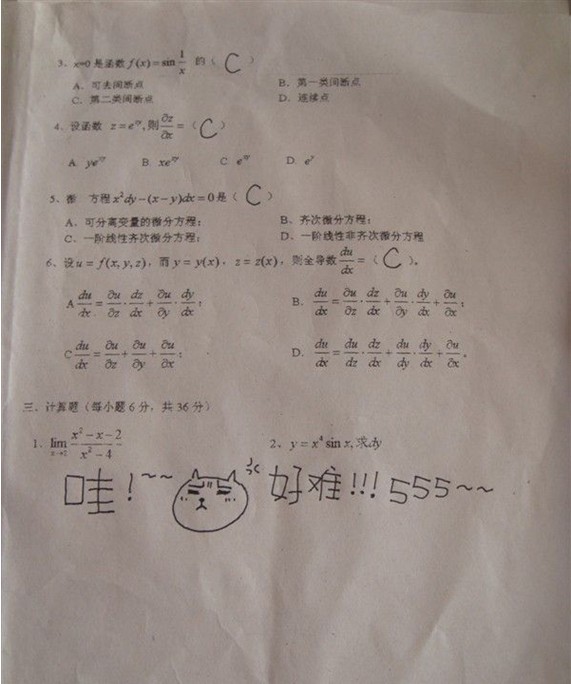 3、x=0 是函数 f(x)=sin 1/x 的（ C ）
A、可去间断点 B、第一类间断点
C、第二类间断点 D、连续点
4、设函数 z=e^{xy}, 则 ∂z/∂x =（ C ）
A. ye^{xy} B. xe^{xy} C e^{xy} D. e^y
5、微 方程 x²dy-(x-y)dx=0 是（ C ）
A、可分离变量的微分方程； B、齐次微分方程；
C、一阶线性齐次微分方程； D、一阶线性非齐次微分方程
6、设 u=f(x,y,z)，而 y=y(x)，z=z(x)，则全导数 du/dx =（ C ）。
A du/dx = ∂u/∂z · dz/dx + ∂u/∂y · dy/dx； B. du/dx = ∂u/∂z · dz/dx + ∂u/∂y · dy/dx + ∂u/∂x；
C du/dx = ∂u/∂z + ∂u/∂y + ∂u/∂x； D. du/dx = du/dz · dz/dx + du/dy · dy/dx + ∂u/∂x。
三、计算题（每小题 6 分，共 36 分）
1. lim x→2 x²-x-2/x²-4 2、y=x⁴ sin x, 求dy
哇！~~ 好难!!! 555~~